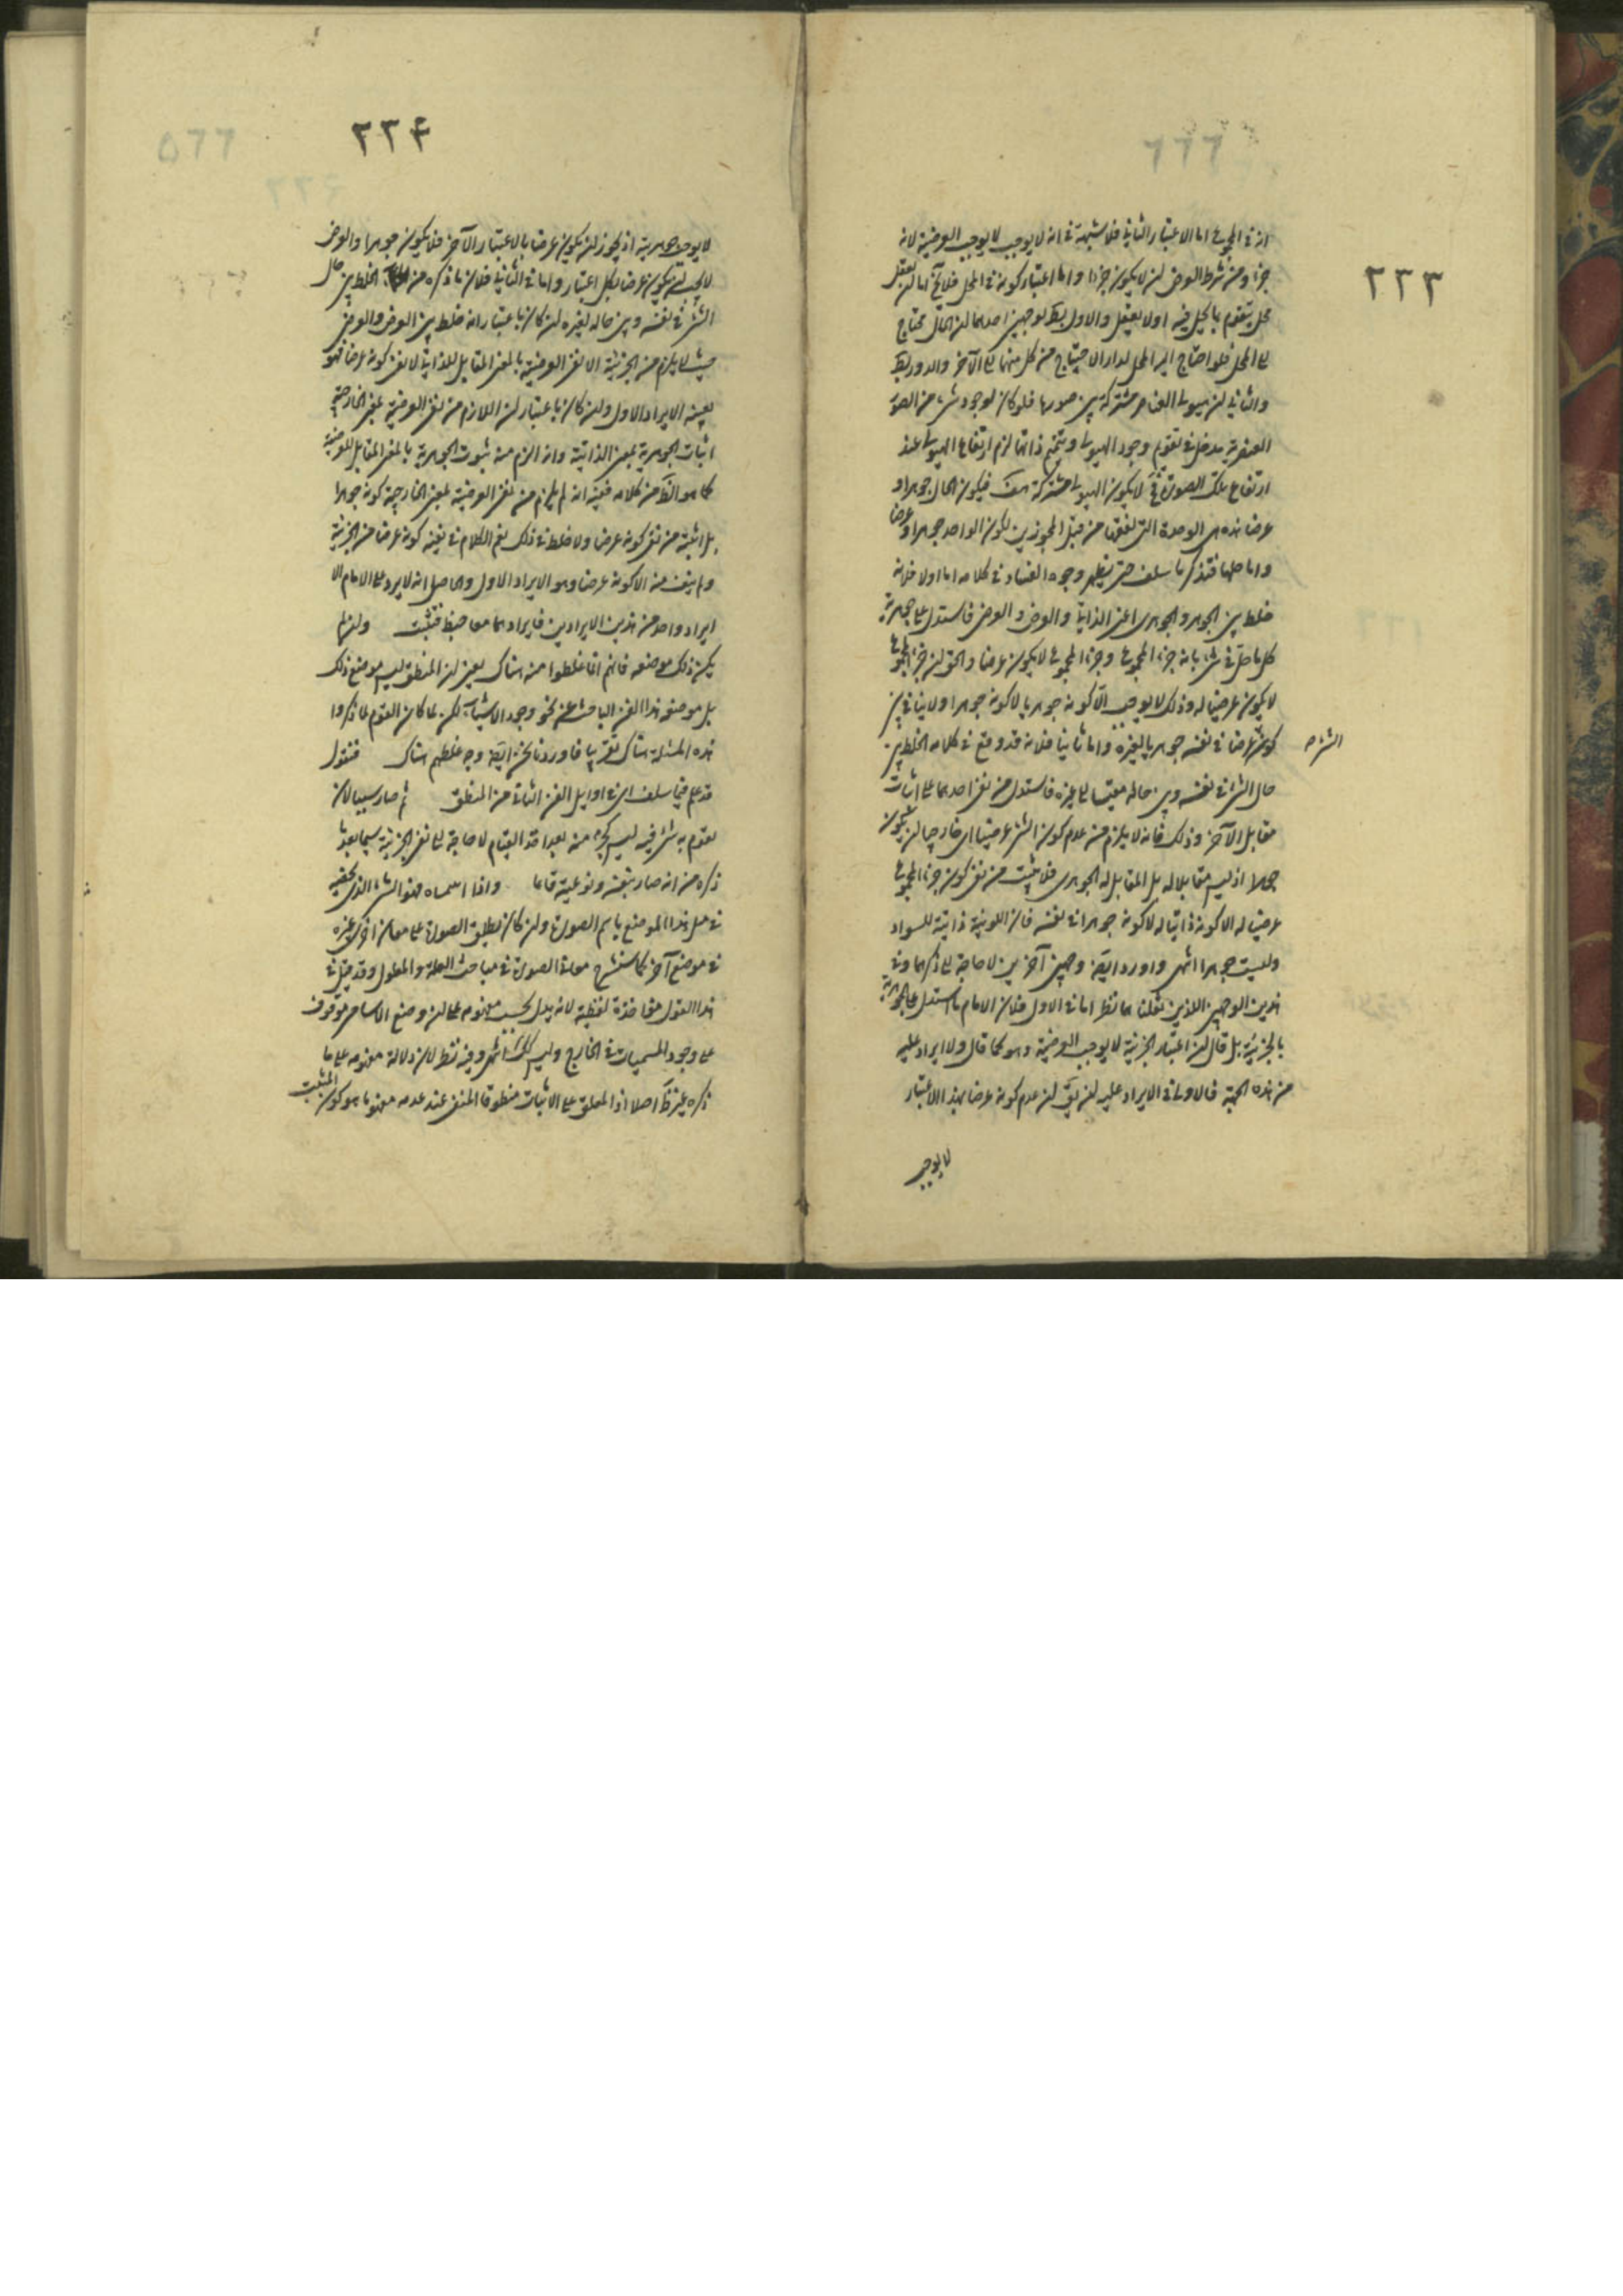 ٢٣٣
انه في المجموع اما الاعتبار الثاني فلا شبهة في انه لا يوجب لا يوجب العرضية لانه
جزء ومن شرط العرض لن لا يكون جزءا واما اعتبار كونه في المحل فلا يخ اما لن يعقل
محل يتقوم بما يحل فيه اولا يعقل والاول بط لوجهين احدهما لن الحال محتاج
الى المحل فلو احتاج اليه المحل لدار الاحتياج من كل منهما الى الآخر والدور بط
والثاني لن هيولى العناصر مشتركة بين صورها فلو كان لوجود شيء من الصور
العنصرية مدخل في تقوم وجود الهيولى وتتميم ذاتها لزم ارتفاع الهيولى عند
ارتفاع تلك الصورة فح لا يكون الهيولى مشتركة هف فيكون الحال جوهرا و
عرضا هذه هي الوحدة التي من قبل المجوزين لكون الواحد جوهرا وعرضا
واما حلها فتذكر ما سلف حتى يظهر وجوه الفساد في كلامه اما اولا فلانه
خلط بين الجوهر والجوهري اعني الذاتي والعرض والعرضي فاستدل على جوهرية
كل ما حل في شيء بانه جزء المجموع وجزء المجموع لا يكون عرضا والحق لن جزء المجموع
لا يكون عرضيا له وذلك لا يوجب الا كونه جوهريا لا كونه جوهرا ولا ينافي بين
كونه عرضا في نفسه جوهريا لغيره واما ثانيا فلانه قد وقع في كلامه الخلط بين
الشيء صح
حال الشيء في نفسه وبين حاله مقيسا الى غيره فاستدل من نفي احدهما على اثبات
مقابل الآخر وذلك فانه لا يلزم من عدم كون الشيء عرضيا اي خارجيا لن يكون
جوهرا اذ ليس مقابلا له بل المقابل له الجوهري فلا يثبت من نفي كون جزء المجموع
عرضيا له الا كونه ذاتيا له لا كونه جوهرا في نفسه فان اللونية ذاتية للسواد
وليست جوهرا انتهى واورد ايضا وجهين آخرين لا حاجة الى ذكرهما وفي
هذين الوجهين اللذين نقلناهما نظر اما في الاول فلان الامام ما استدل على الجوهرية
بالجزئية بل قال لن اعتبار الجزئية لا يوجب العرضية وهو كما قال ولا ايراد عليه
من هذه الجهة فالاولى في الايراد عليه لن يق لن عدم كونه عرضا بهذا الاعتبار
لا يوجب
٢٣٤
لا يوجب جوهرية اذ يجوز لن يكون عرضا بالاعتبار الآخر فلا يكون جوهرا والعرض
لا يجب لن يكون عرضا بكل اعتبار واما في الثاني فلان ما ذكره من الخلط بين حال
الشيء في نفسه وبين حاله لغيره لن كان باعتبار انه خلط بين العرض والعرضي
حيث لا يلزم من الجزئية الا نفي العرضية بالمعنى المقابل للذاتي لا نفي كونه عرضا فهو
بعينه الايراد الاول ولن كان باعتبار لن اللازم من نفي العرضية بمعنى الخارجية
اثبات الجوهرية بمعنى الذاتية وانه الزم منه ثبوت الجوهرية بالمعنى المقابل للعرضية
كما هو الظ من كلامه ففيه انه لم يلزم من نفي العرضية بمعنى الخارجية كونه جوهرا
بل اثبته من نفي كونه عرضا ولا خلط في ذلك نعم الكلام في نفيه كونه عرضا من الجزئية
ولم ينف منه الا كونه عرضا وهو الايراد الاول والحاصل انه لا يرد على الامام الا
ايراد واحد من هذين الايرادين فايرادهما معا خبط فتثبت ولن لم
يكن ذلك موضعه فانهم انما غلطوا منه هناك يعني لن المنطق ليس موضع ذلك
بل موضعه هذا الفن الباحث عن نحو وجود الاشياء لكن لما كان القوم لما ذكروا
هذه المسئلة هناك تقريبا فاوردنا نحن ايضا وجه غلطهم هناك فنقول
قد علم فيما سلف اي في اوايل الفن الثاني من المنطق ثم صار سببا لان
يقوم به شيء فيه ليس كجزء منه بعد اخذ القيام لا حاجة الى نفي الجزئية سيما بعد ما
ذكره من انه صار بنفسه ونوعيته قائما واذا اسماه فهو الشيء الذي يخصه
في مثل هذا الموضع باسم الصورة ولن كان يطلق الصورة على معان اخرى غيره
في موضع آخر كما سنشرح معاني الصورة في مباحث العلة والمعلول وقد قيل في
هذا القول مؤاخذة لفظية لانه يدل بحسب مفهومه على لن وضع الاسامي موقوف
على وجود المسميات في الخارج وليس كك انتهى وفيه نظر لان دلالة مفهومه على ما
ذكره غير ظ اصلا اذ المعلق على الاثبات منطوقا المنفي عند عدمه مفهوما هو كون المثبت